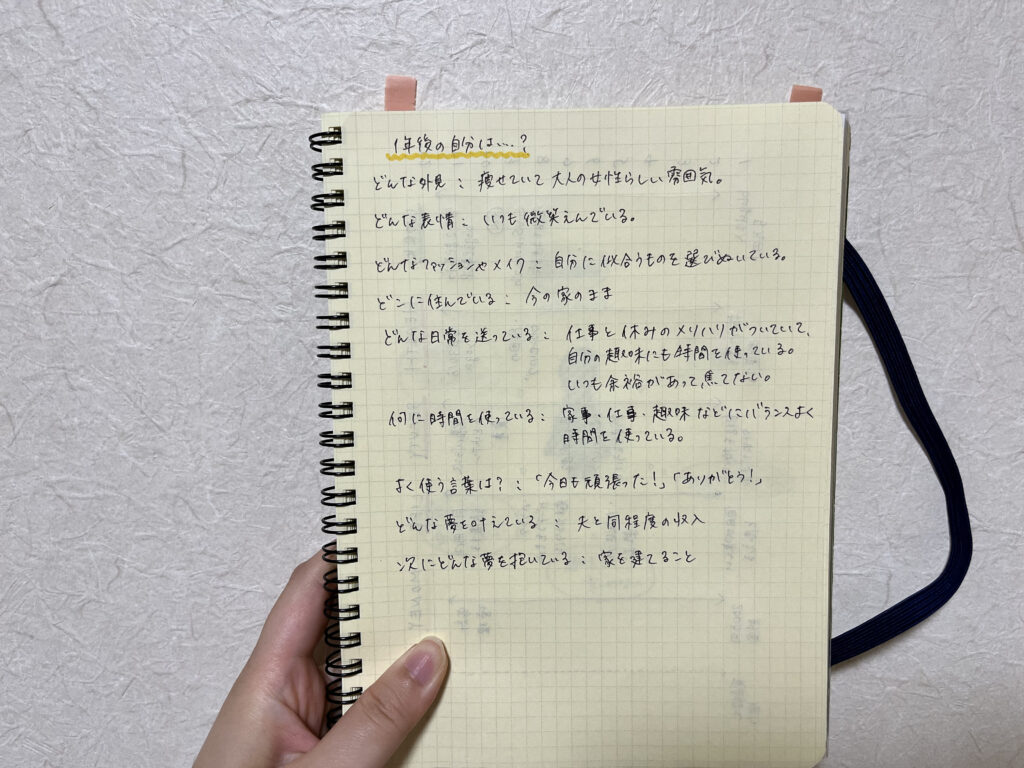 1年後の自分は…?
どんな外見 : 痩せていて大人の女性らしい雰囲気。
どんな表情 : いつも微笑えんでいる。
どんなファッションやメイク : 自分に似合うものを選びぬいている。
どこに住んでいる : 今の家のまま
どんな日常を送っている : 仕事と休みのメリハリがついていて、
自分の趣味にも時間を使っている。
いつも余裕があって、焦てない。
何に時間を使っている : 家事・仕事・趣味などにバランスよく
時間を使っている。
よく使う言葉は? : 「今日も頑張った!」「ありがとう!」
どんな夢を叶えている : 夫と同程度の収入
次にどんな夢を抱いている : 家を建てること